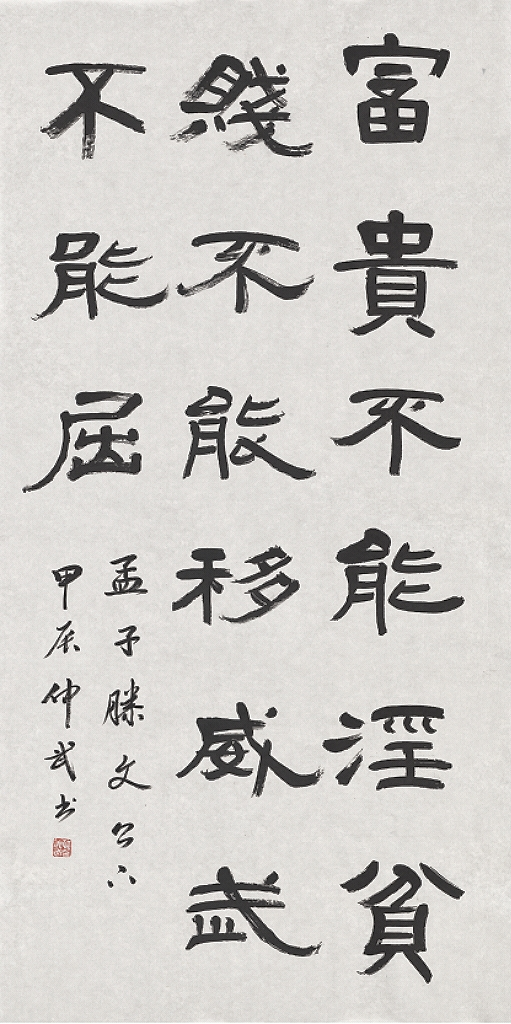 富貴不能淫貧
賤不能移威武
不能屈
孟子滕文公下
甲辰仲武书